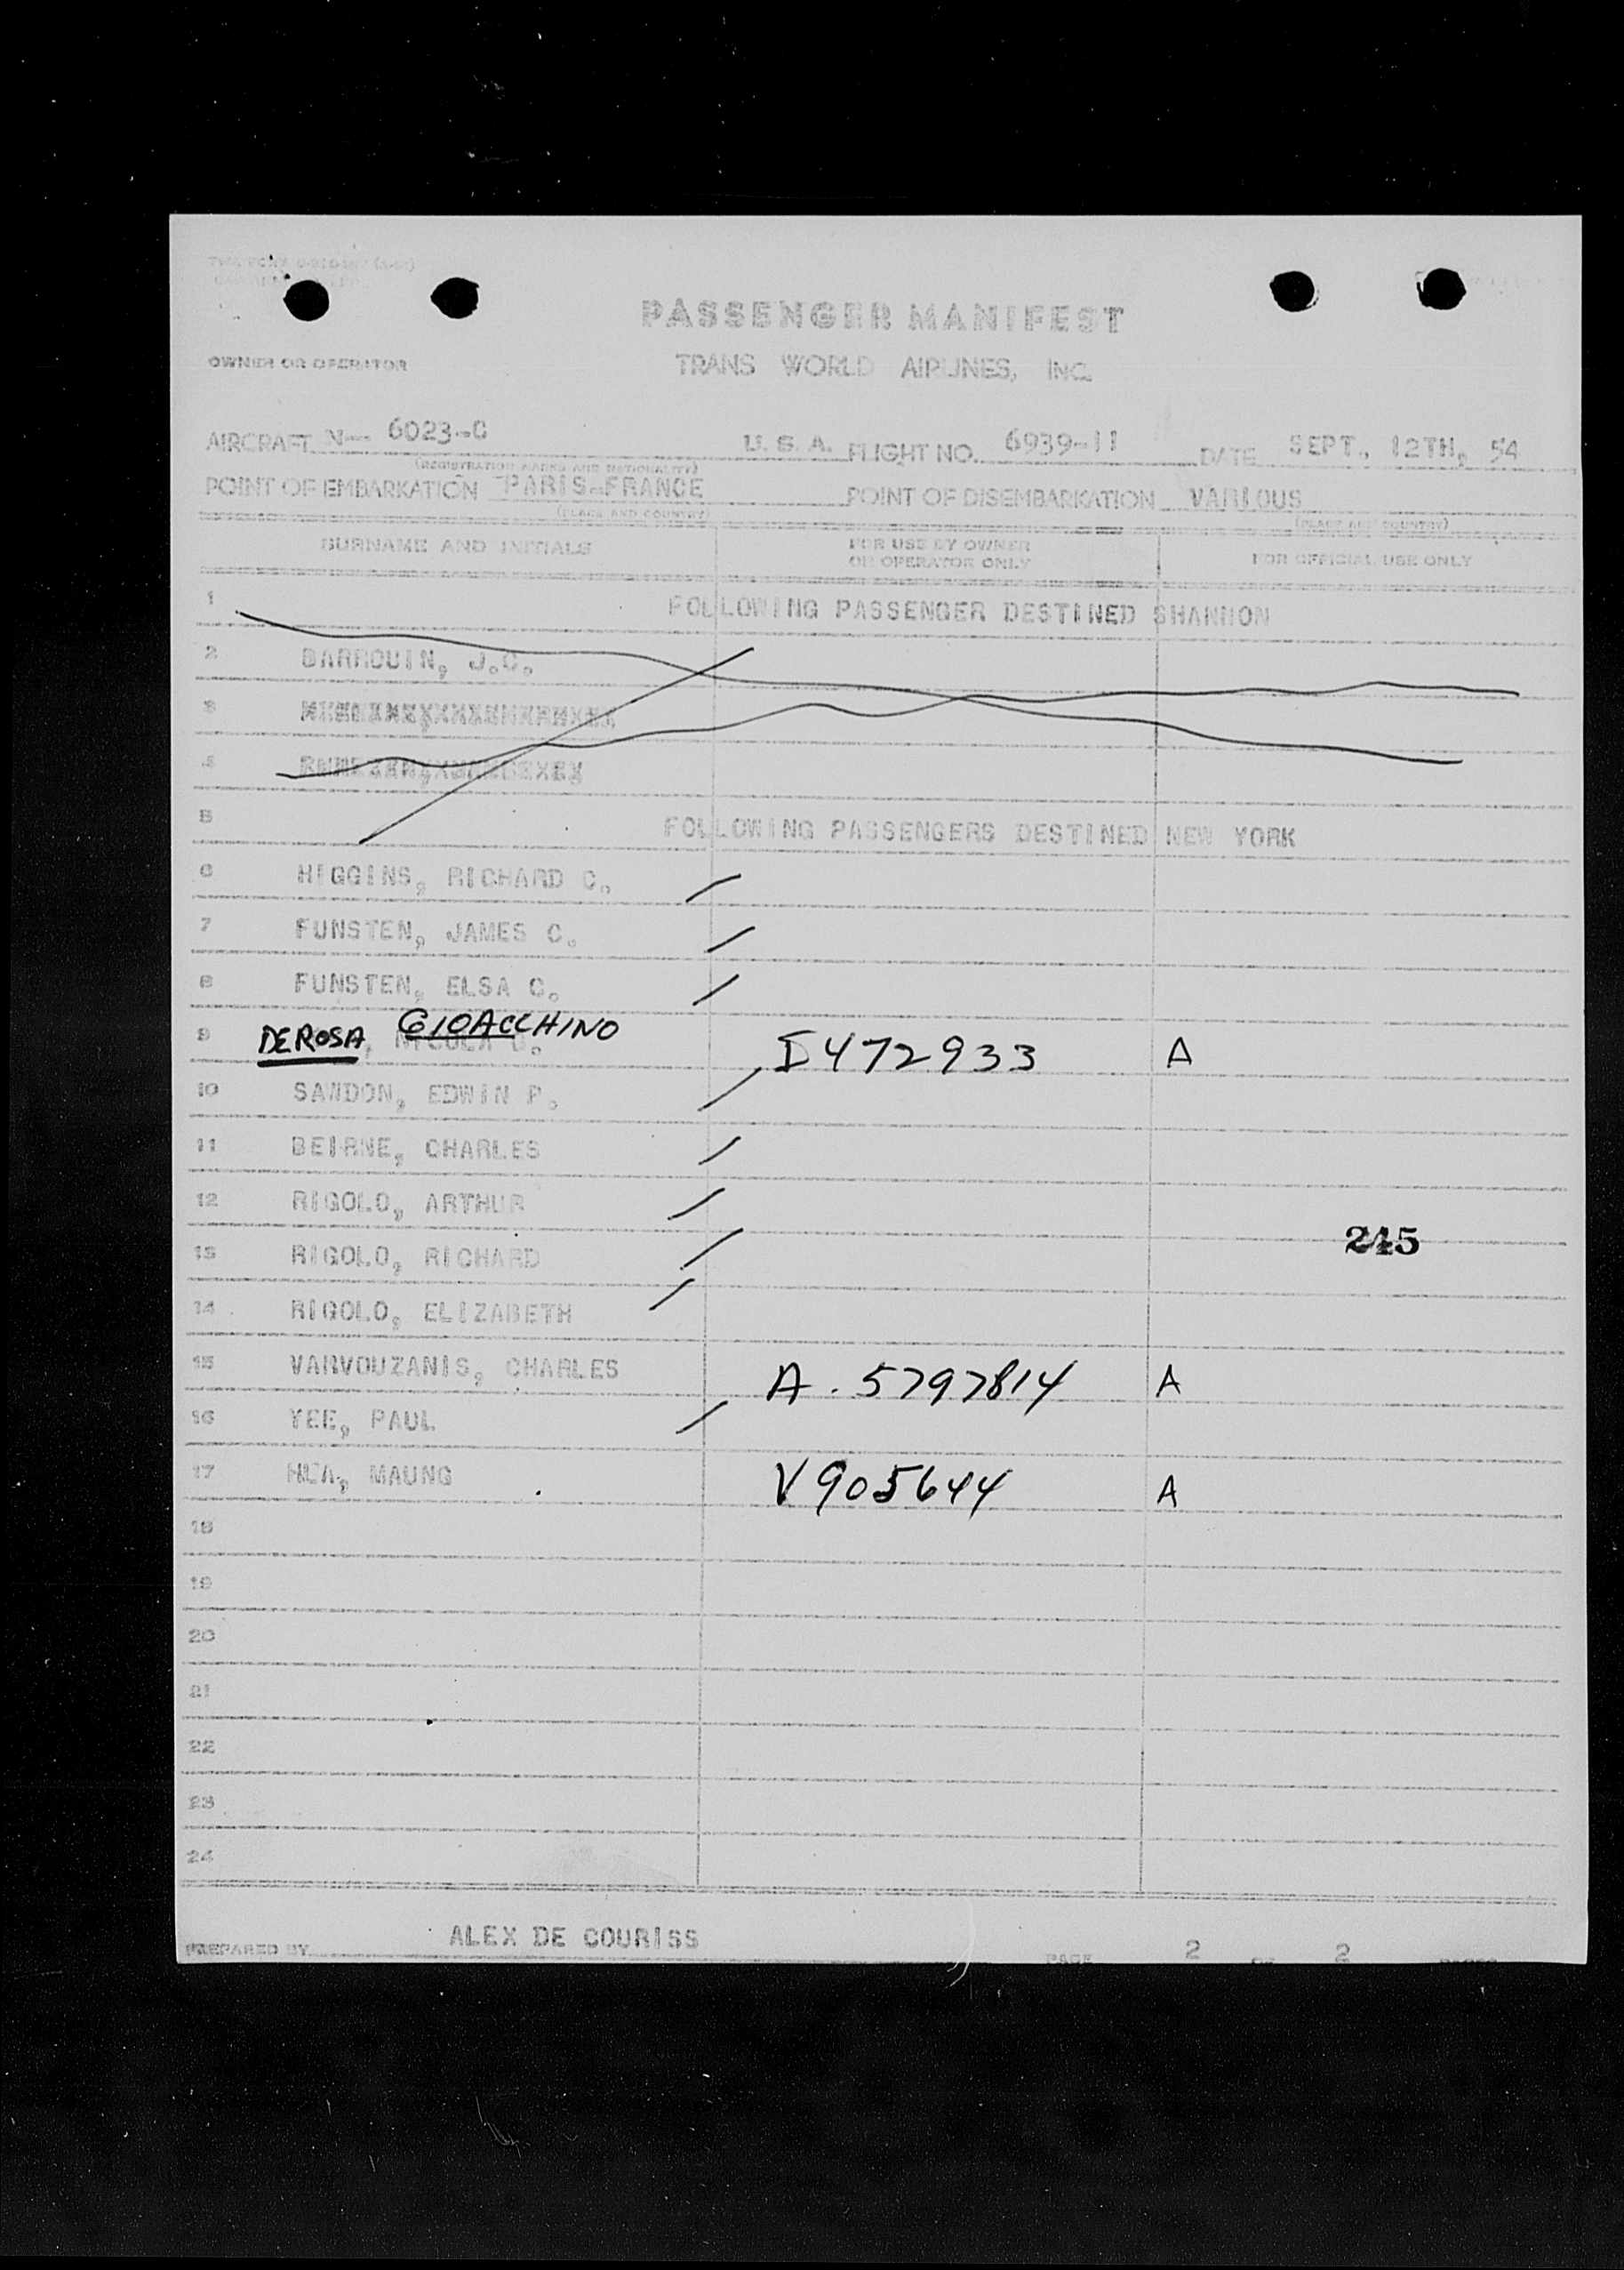 PASSENGER MANIFEST
OWNER OR OPERATOR TRANS WORLD AIRLINES, INC.
AIRCRAFT N-- 6023-C U. S. A. FLIGHT NO. 6939-11 DATE SEPT., 12TH, 54
(REGISTRATION MARKS AND NATIONALITY)
POINT OF EMBARKATION PARIS-FRANCE POINT OF DISEMBARKATION VARIOUS
(PLACE AND COUNTRY) (PLACE AND COUNTRY)
SURNAME AND INITIALS FOR USE BY OWNER OR OPERATOR ONLY FOR OFFICIAL USE ONLY
1 FOLLOWING PASSENGER DESTINED SHANNON
2 BARROUIN, J.C.
3
4
5 FOLLOWING PASSENGERS DESTINED NEW YORK
6 HIGGINS, RICHARD C.
7 FUNSTEN, JAMES C.
8 FUNSTEN, ELSA C.
9 DEROSA, GIOACCHINO I472933 A
10 SANDON, EDWIN P.
11 BEIRNE, CHARLES
12 RIGOLO, ARTHUR
245
13 RIGOLO, RICHARD
14 RIGOLO, ELIZABETH
15 VARVOUZANIS, CHARLES A. 5797814 A
16 YEE, PAUL
17 HLA, MAUNG V905644 A
18
19
20
21
22
23
24
PREPARED BY ALEX DE COURISS PAGE 2 OF 2 PAGES